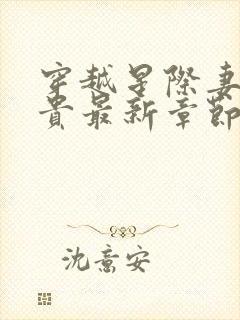 穿越星際妻
貴最新章節
沈意安